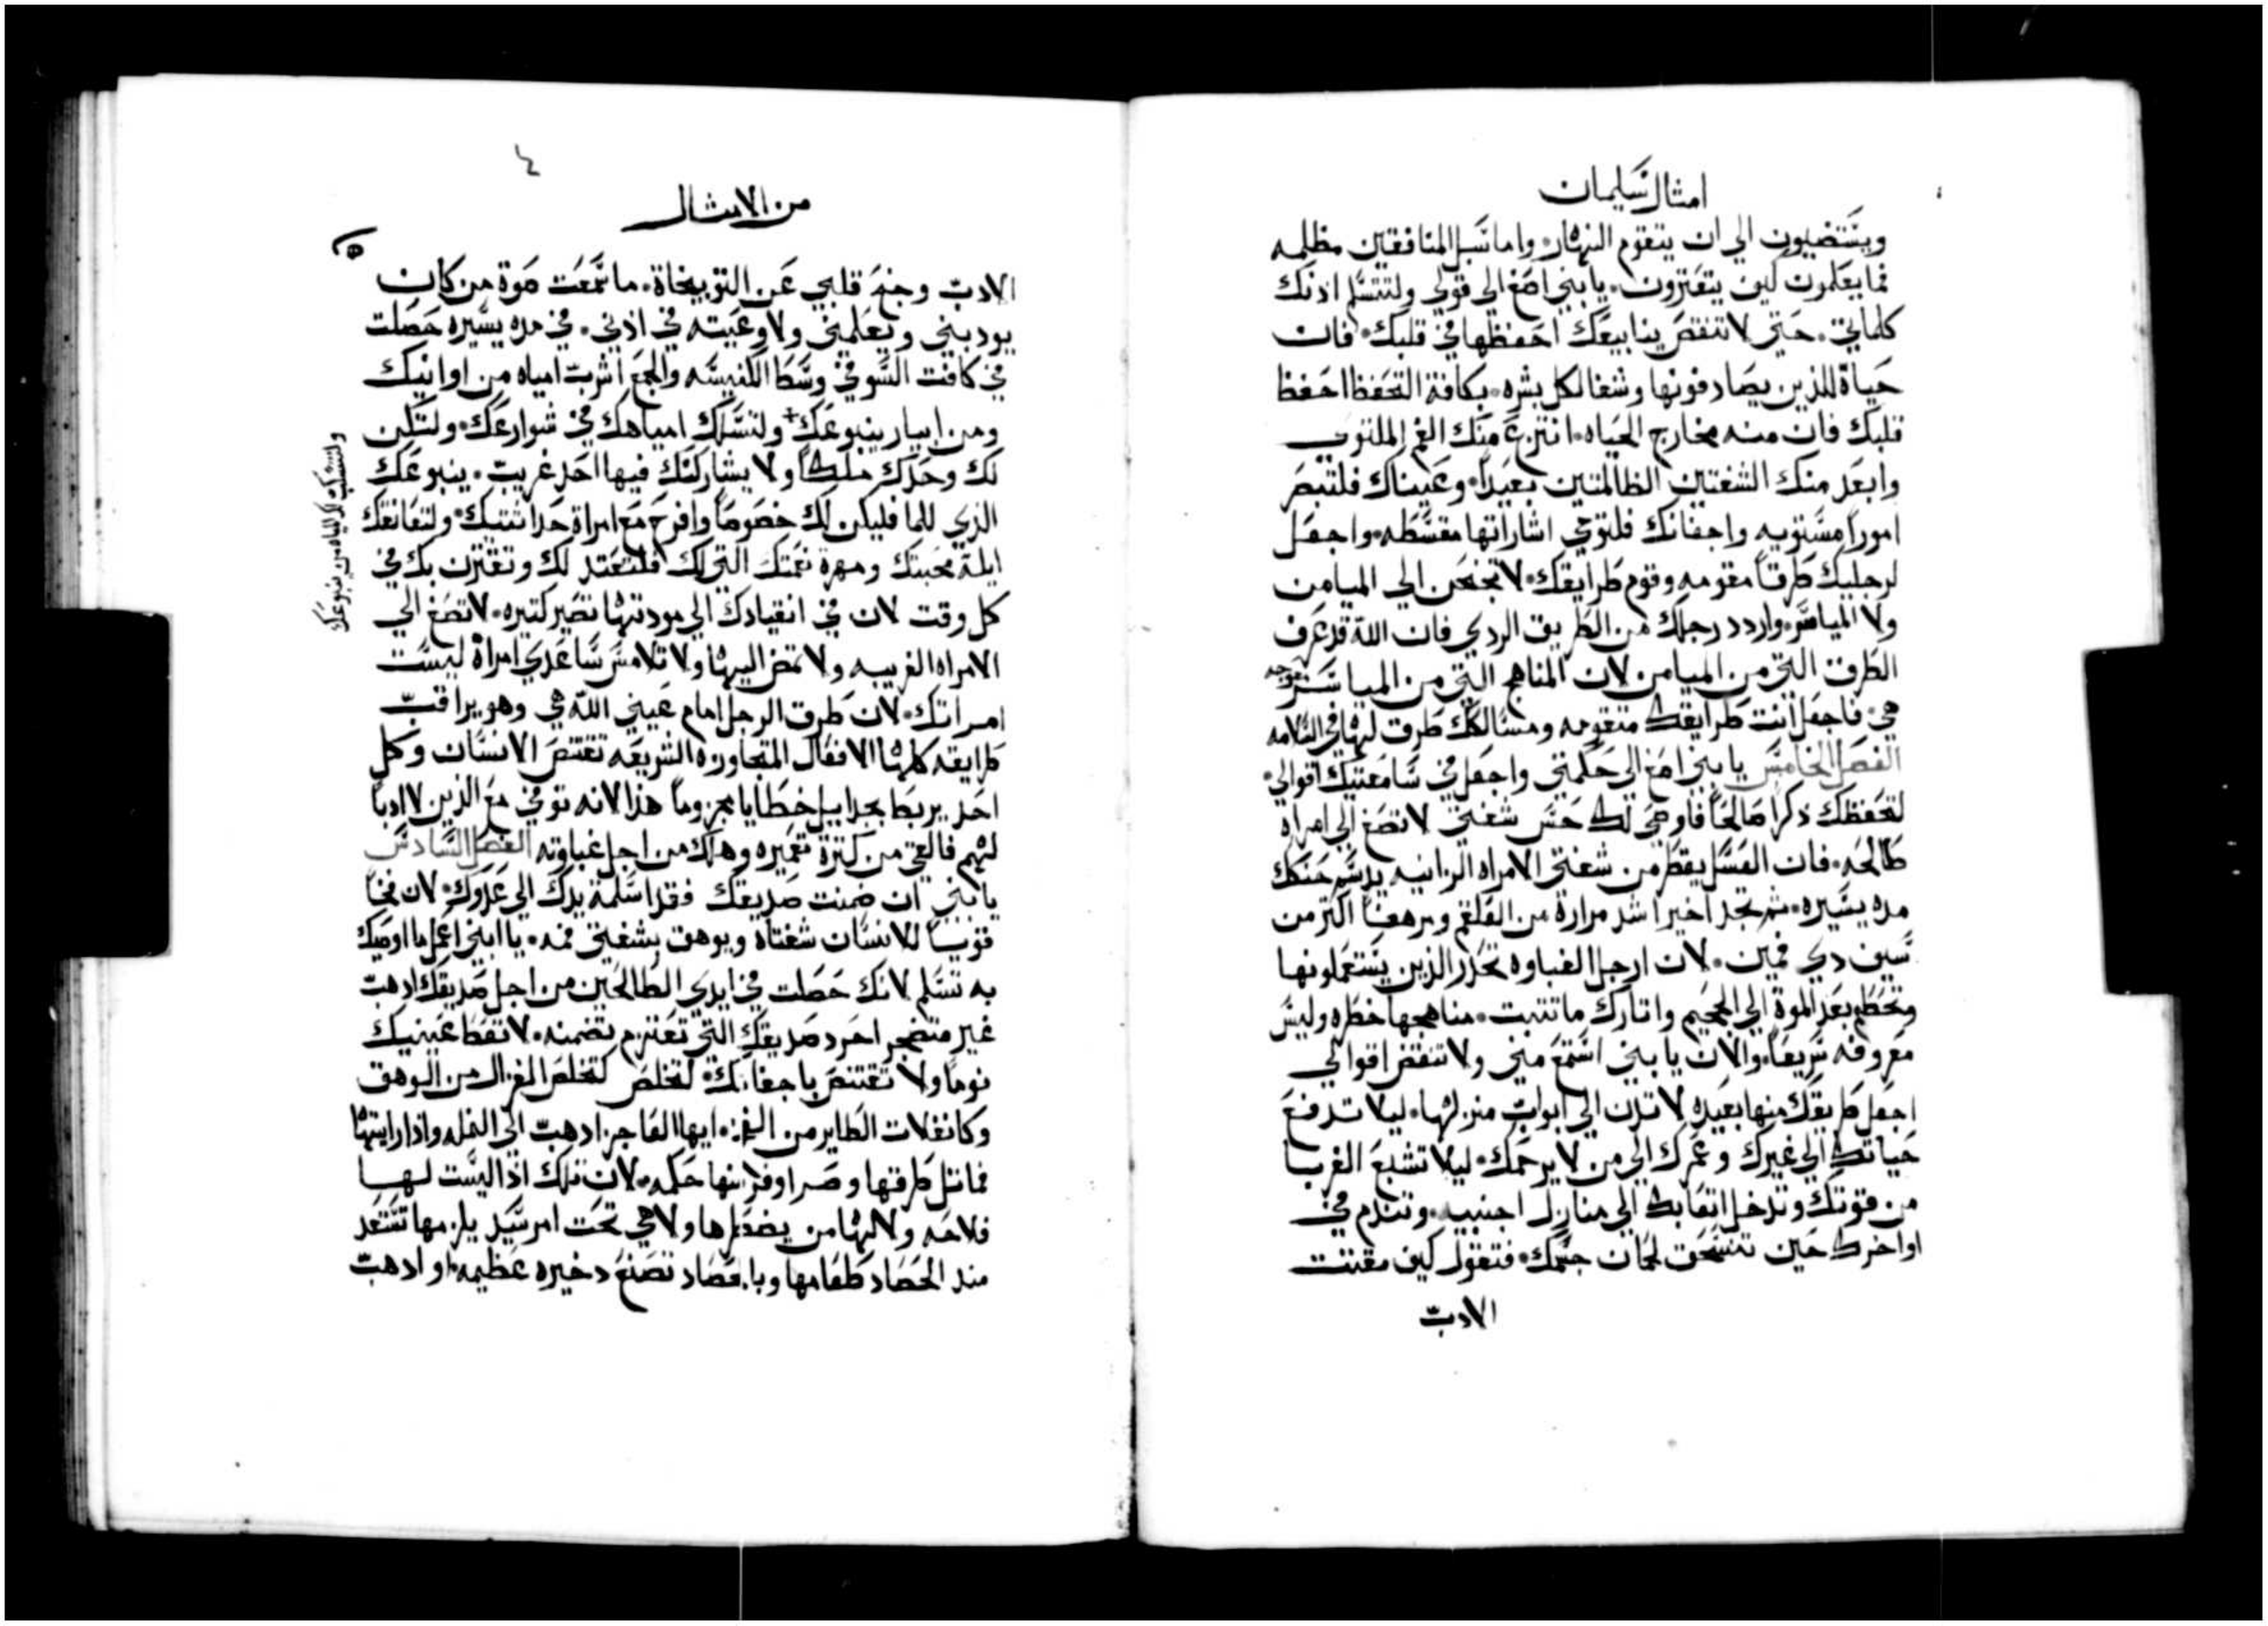 امثال سليمان
ويستضيون الي ان يتقوم النهار، واما سبل المنافقين مظلمه
فما يعلمون كيف يتعترون، يا بني اصغ الي قولي ولتتسلم اذنك
كلماتي، حتي لا تنقص ينابيعك احفظها في قلبك، فان
حياة للذين يصادفونها وشفا لكل بشره، بكافة التحفظ احفظ
قلبك فان منه مخارج الحياه، انتزع منك الفم الملتوي
وابعد منك الشفتين الظالمتين بعيداً، وعيناك فلتبصر
اموراً مستويه واجفانك فلتوحي اشاراتها مقسطه، واجعل
لرجليك طرقاً مقومه وقوم طرايقك، لا تجنحن الي الميامن
ولا المياسر، واردد رجلك من الطريق الردي فان الله قد عرف
الطرق التي من الميامن لان المناهج التي من المياسر معوجه
هي، فاجعل انت طرايقك متقومه ومسالكك طرق لها في السلامه
الفصل الخامس يا بني اصغ الي حكمتي واجعل في سامعتيك اقوالي،
لتحفظك ذكراً صالحاً فاوصي لك حس شفتي لا تصغ الي امراه
طالحه، فان العسل يقطر من شفتي الامراه الزانيه يدسم حنكك
مده يسيره، ثم تجد اخيراً اشد مرارة من العلقم ومرهفاً اكثر من
سيف ذي فمين، لان ارجل الغباوه تحدر الذين يستعملونها
وتحطم بعد الموة الي الجحيم واتارك ما تتبت، مناهجها خطره وليس
معروفه سريعاً، والان يا بني استمع مني ولا تنقض اقوالي
اجعل طريقك منها بعيده لا تدن الي ابواب منزلها، ليلا تدفع
حياتك الي غيرك وعمرك الي من لا يرحمك، ليلا تشبع الغربا
من قوتك وتدخل اتعابك الي منازل اجنبيه، وتندم في
اواخرك حين تنسحق لحمان جسمك، فتقول كيف مقتت
الادب
٤
من الامثال
٥
الادب وجنح قلبي عن التوبيخاة، ما سمعت صوة من كان
يودبني ويعلمني ولا وعيته في اذني، في مده يسيره حصلت
في كافت السو في وسط الكنيسه والجمع اشرب امياه من اوانيك
ومن ابيار ينبوعك+ ولتسلك امياهك في شوارعك، ولتكن
لك وحدك ملكاً ولا يشاركنك فيها احد غريب، ينبوعك
الذي للما فليكن لك خصوصاً وافرح مع امراة حداثتك، ولتعانقك
ايلة محبتك ومهرة نعمتك التي لك فلتعتد لك وتقترن بك في
كل وقت لان في انقيادك الي مودتها تصير كتيره، لا تصغ الي
الامراه الغريبه ولا تمض اليها ولا تلامس ساعدي امراة ليست
امراتك، لان طرق الرجل امام عيني الله هي وهو يراقب
طرايقه كلها الافعال المتجاوزه الشريعه تقتنص الانسان وكل
احد يربط بجرابيل خطايا مجزوماً هذا لانه توفي مع الذين لا ادبا
لهم فالعي من كترة تعميره وهلك من اجل غباوته الفصل السادس
يا بني ان ضمنت صديقك فقد اسلمة يدك الي عدوك، لان فخاً
قويا للانسان شفتاه ويوهق بشفتي فمه، يا ابني اعمل ما اوصيك
به تسلم لانك حصلت في ايدي الطالحين من اجل صديقك اذهب
غير متضجر احرد صديقك التي تعتزم تضمنه، لا تعط عينيك
نوماً ولا تقتنص باجفانك، لتخلص كتخلص الغزال من الوهق
وكانفلات الطاير من الفخ، ايها العاجز اذهب الي النمله واذا رايتها
فماتل طرقها وصر اوفر منها حكمه، لان تلك اذا ليست لها
فلاحه ولا لها من يضطرها ولا هي تحت امر سيد يلزمها تستعد
منذ الحصاد طعامها وبالحصاد تصنع دخيره عظيمه، او اذهب
ولتنسكب لك المياه من ينبوعك